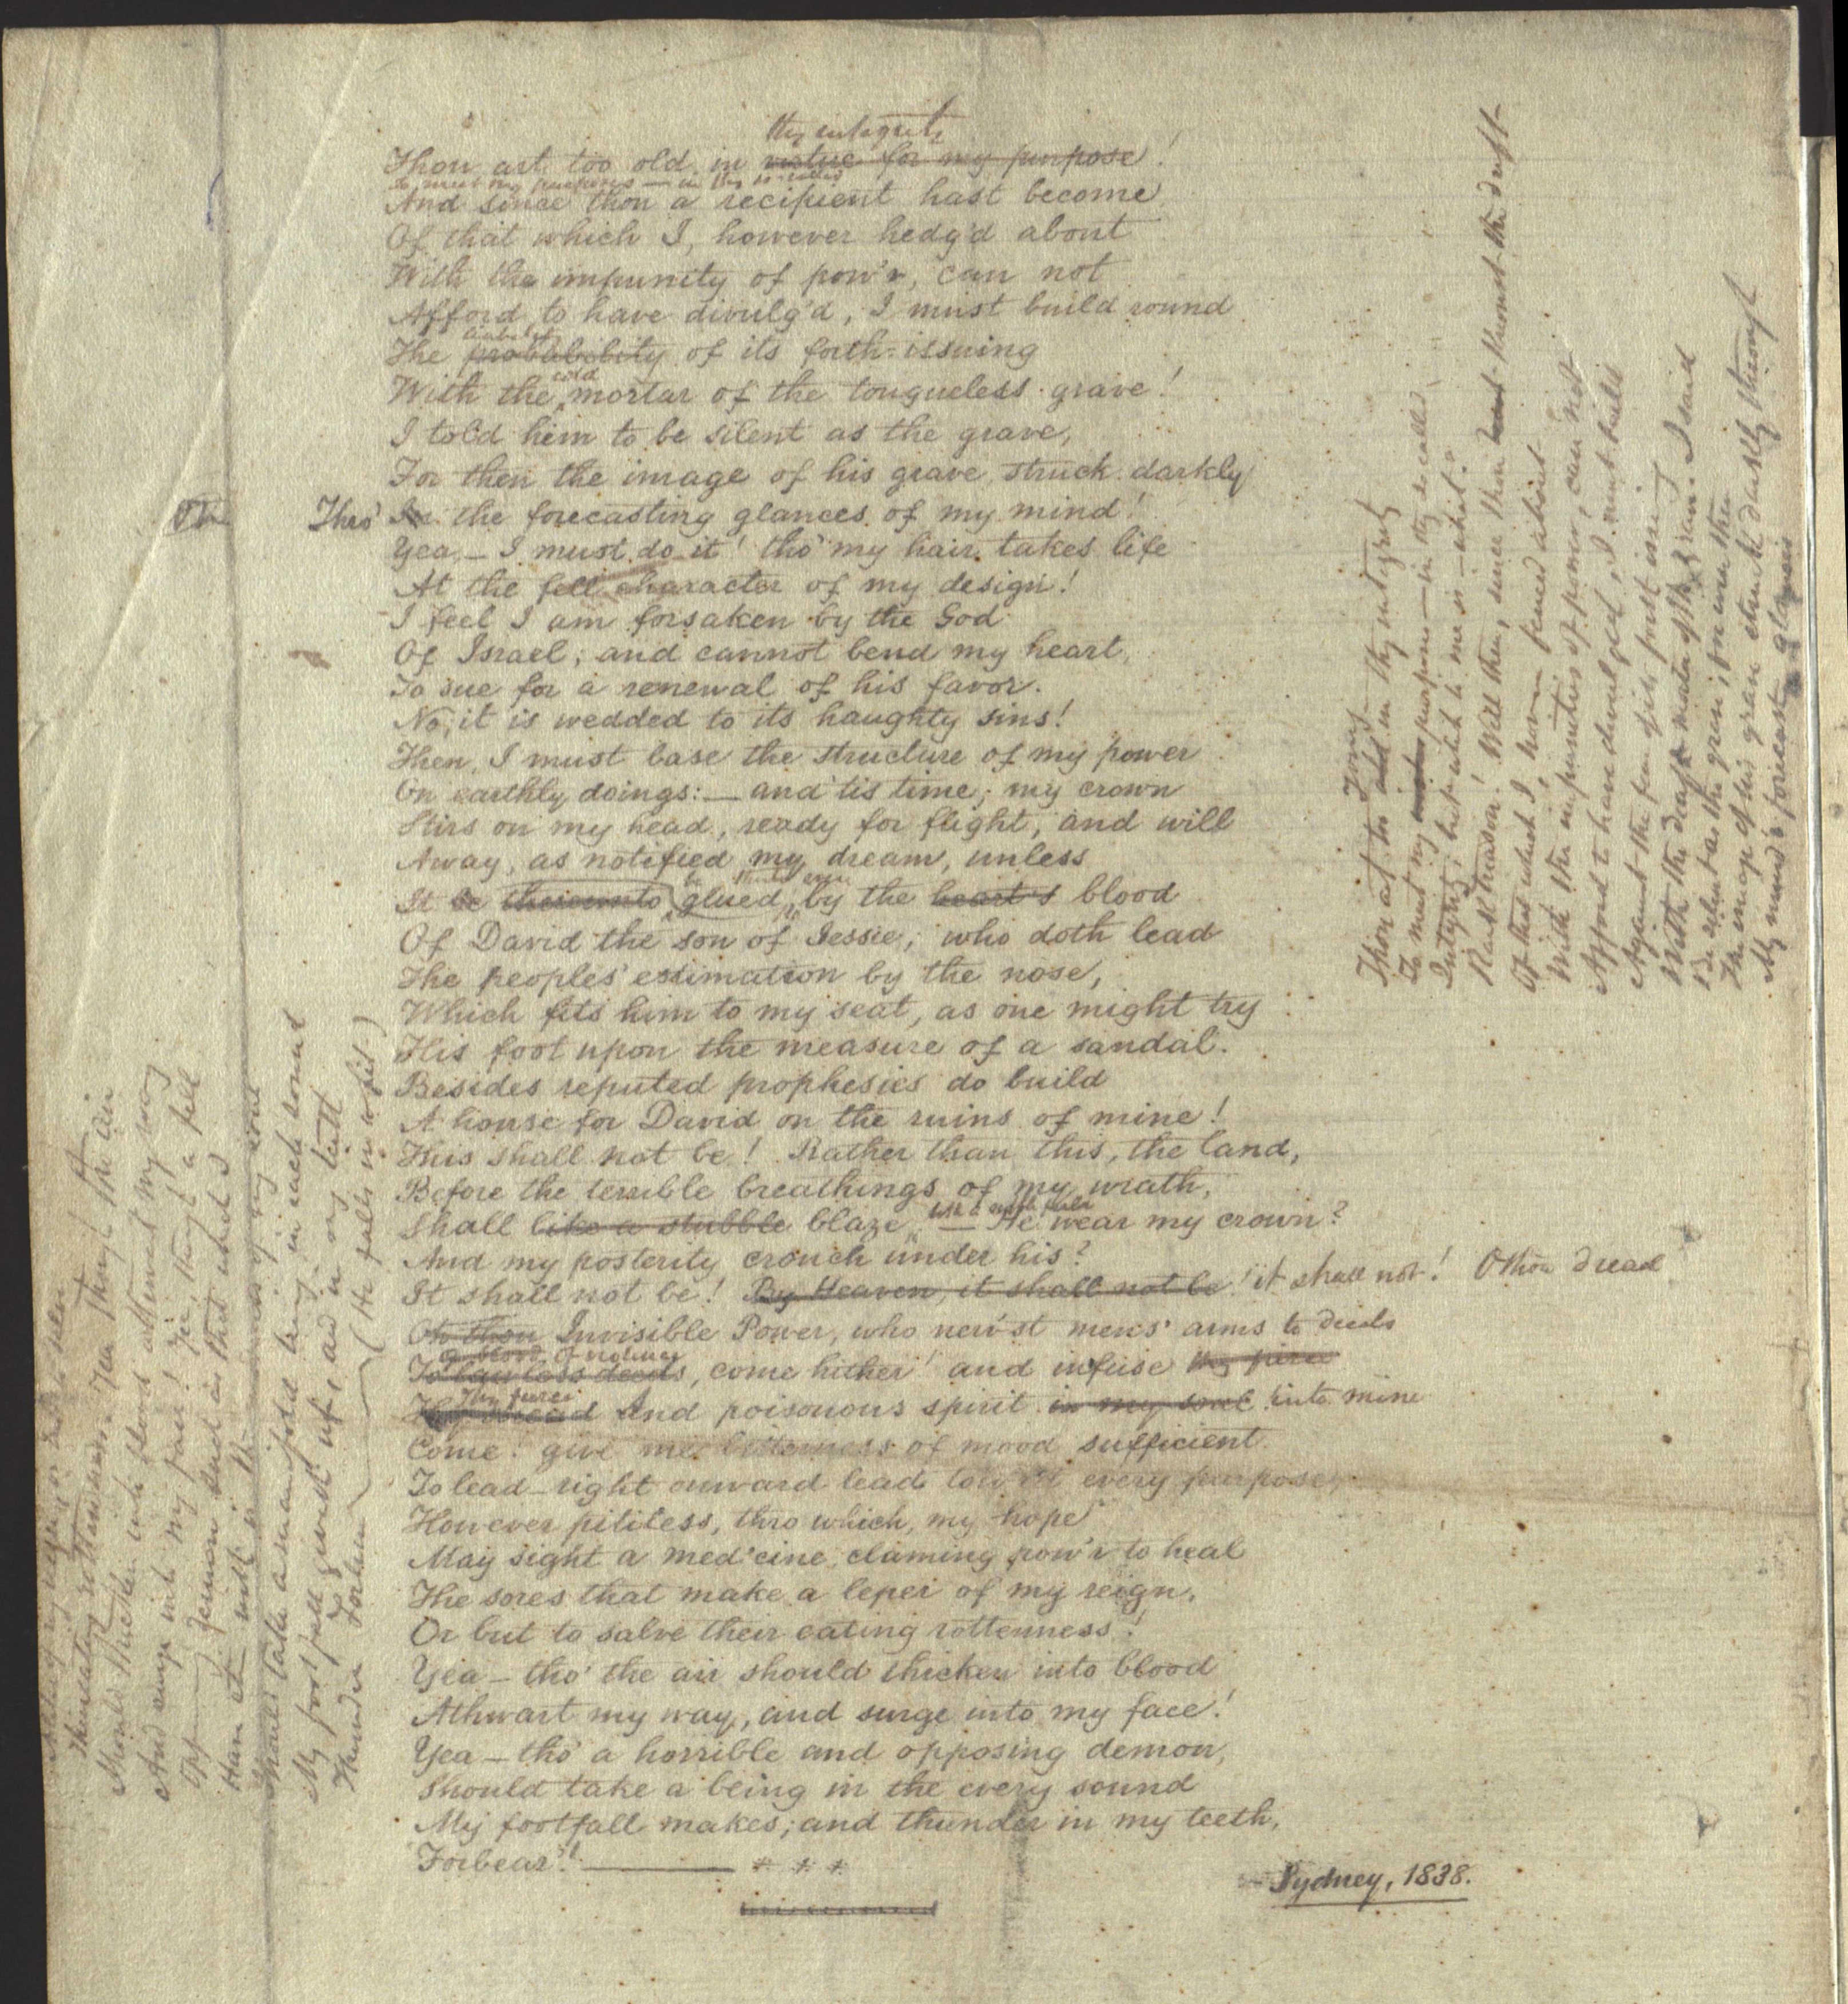 thy integrity
Thou art too old in virtue for my purpose!
To meet my purposes — in thy so-called
And since thou a recipient hast become
Of that which I, however hedg'd about
With the impunity of pow'r, can not
Afford to have divulg'd, I must build round
The probability of its forth-issuing
cold
With the mortar of the tongueless grave!
I told him to be silent as the grave,
For then the image of his grave struck darkly
Thro' In the forecasting glances of my mind!
Yea, — I must do it! tho' my hair takes life
At the fell character of my design!
I feel I am forsaken by the God
Of Israel; and cannot bend my heart,
To sue for a renewal of his favor.
No, it is wedded to its haughty sins!
Then, I must base the structure of my power
On earthly doings: — and 'tis time; my crown
Stirs on my head, ready for flight, and will
Away, as notified my dream, unless
be
It be thereunto glued, by the heart's blood
Of David the son of Jessie, who doth lead
The peoples' estimation by the nose,
Which fits him to my seat, as one might try
His foot upon the measure of a sandal.
Besides reputed prophesies do build
A house for David on the ruins of mine!
This shall not be! Rather than this, the land,
Before the terrible breathings of my wrath,
Shall like a stubble blaze — He wear my crown?
And my posterity crouch under his?
It shall not be! By Heaven, it shall not be! it shall not! O thou dread
Oh thou Invisible Power, who nerv'st mens' arms to deeds
Of blood Of violence
To lawless deeds, come hither! and infuse thy fierce
Thy fierce
And poisonous spirit in my soul into mine
Come! give me bitterness of mood sufficient
To lead — right onward lead tow'rd every purpose,
However pitiless, thro which, my hope
May sight a med'cine, claming pow'r to heal
The sores that make a leper of my reign,
Or but to salve their eating rottenness!
Yea — tho' the air should thicken into blood
Athwart my way, and surge into my face!
Yea — tho' a horrible and opposing demon,
Should take a being in the every sound
My footfall makes; and thunder in my teeth,
Forbear! — * * *
Sydney, 1838.
Thou art too old in thy integrity
To meet my purpose — in thy so called
Integrity, but which to me is — what?
Rank treason! Well then, since thou
Of that which I, howe'er fenced about
With the impunities of power, can not
Afford to have divulged, I must build
Against the
With the deaf
Be silent as the grave
The image of his grave struck darkly through
My mind's forecast glances
threatening rottenness. Yea though the air
Should thicken into blood athwart my way
And surge into my face! Yea, though a fell
Opp demon such as that which I
Shall take a manifold being in each sound
My foot fall and in my teeth
Thunder Forbear (He falls in a fit)